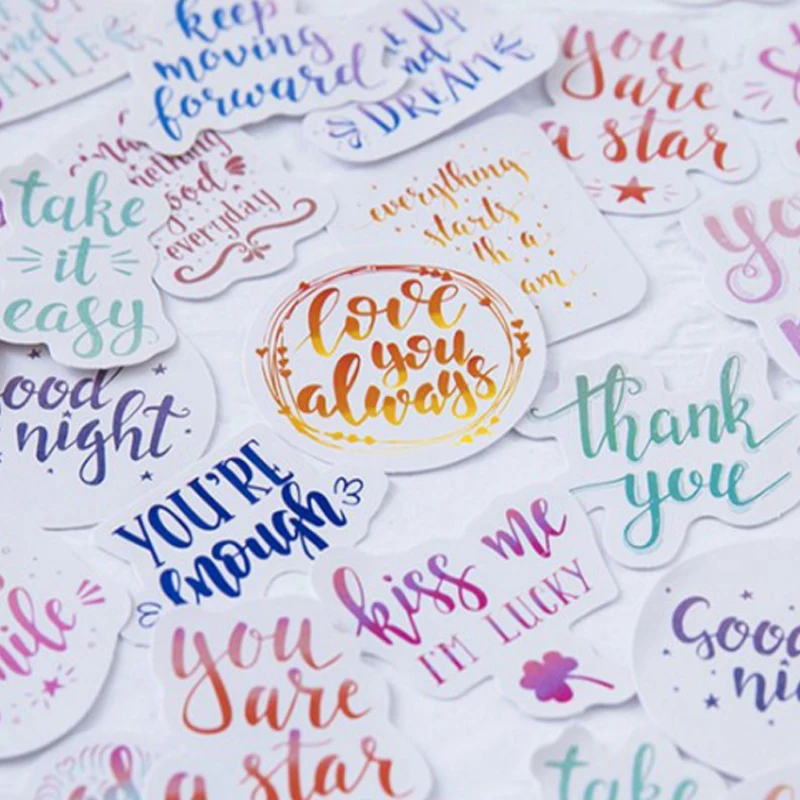 keep
moving
forward
Up
nd
DREAM
MILE
you
are
a star
take
it
easy
ood
everyday
everything
starts
love
you
always
ood
night
YOU'RE
enough
thank
you
kiss me
I'M LUCKY
you
are
a star
Good
take